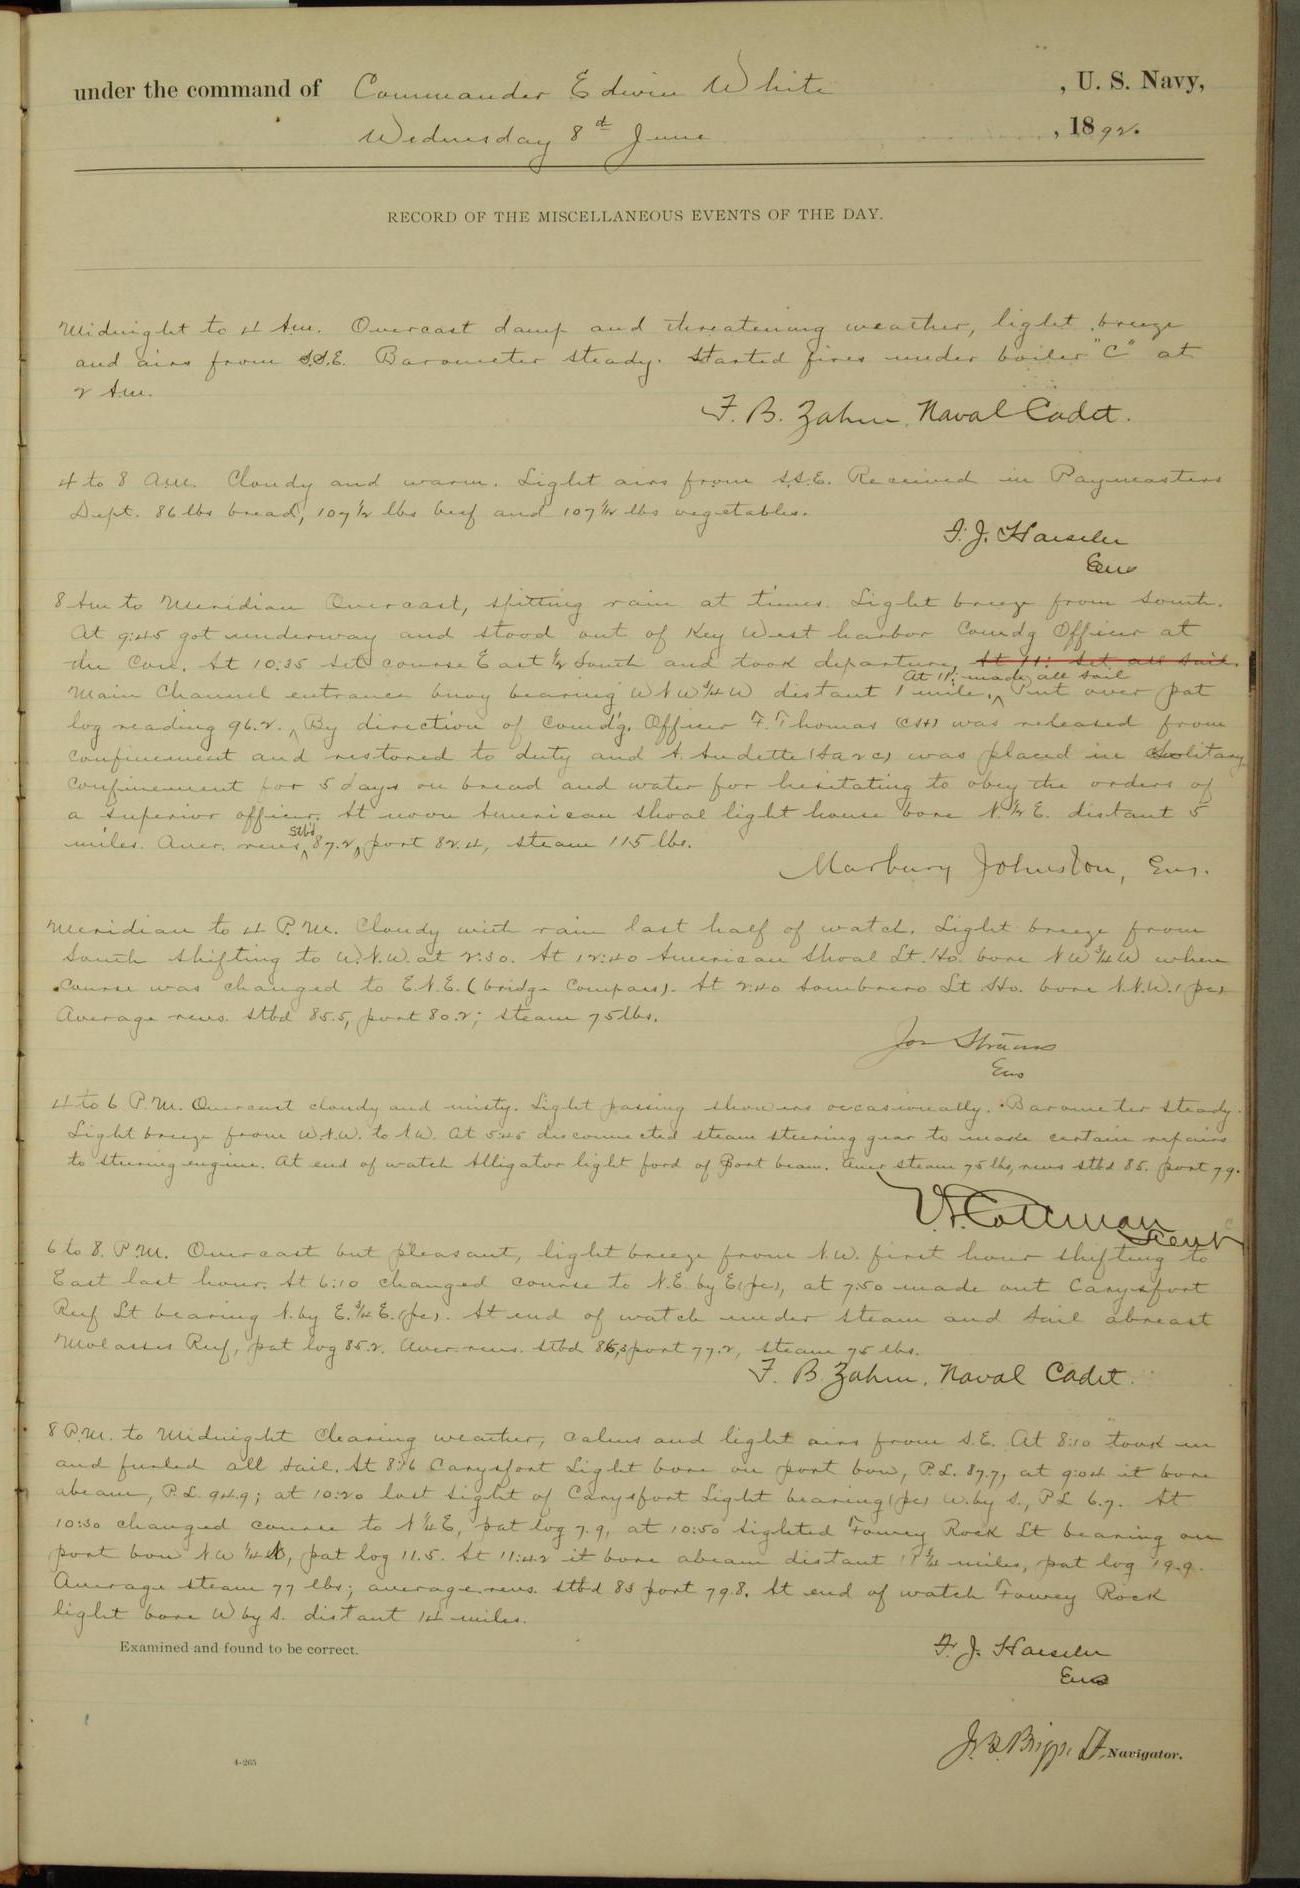 under the command of Commander Edwin White , U. S. Navy,
Wednesday 8th June , 1892.
RECORD OF THE MISCELLANEOUS EVENTS OF THE DAY.
Midnight to 4 Am. Overcast damp and threatening weather, light breeze
and airs from S.S.E. Barometer steady. Started fires under boiler "C" at
2 Am.
F. B. Zahm, Naval Cadet.
4 to 8 a.m. Cloudy and warm. Light airs from S.S.E. Received in Paymasters
Dept. 86 lbs bread, 107 1/2 lbs beef and 107 1/2 lbs vegetables.
F. J. Haeseler
Ens
8 Am to Meridian Overcast, spitting rain at times. Light breeze from South.
At 9:45 got underway and stood out of Key West harbor Comdg Officer at
the Con. At 10:35 set course East 1/2 South and took departure, At 11: set all sail.
At 11: made all sail
Main Channel entrance buoy bearing WNW 3/4 W distant 1 mile. Put over pat
log reading 96.2. By direction of Comd'g. Officer F. Thomas (CSH) was released from
confinement and restored to duty and A. Audette (Sa 2c) was placed in solitary
confinement for 5 days on bread and water for hesitating to obey the orders of
a superior officer. At noon American Shoal light house bore N. 1/2 E. distant 5
miles. Aver. revs stb'd 87.2, port 82.4, steam 115 lbs.
Marbury Johnston, Ens.
Meridian to 4 P.M. Cloudy with rain last half of watch. Light breeze from
South shifting to W.N.W. at 2:30. At 12:40 American Shoal Lt. Ho. bore NW 3/4 W when
course was changed to E.N.E. (bridge Compass). At 2:40 Sombrero Lt. Ho. bore N.N.W. (pc)
Average revs. stbd 85.5, port 80.2; steam 75 lbs.
Jos Strauss
Ens
4 to 6 P.M. Overcast cloudy and misty. Light passing showers occasionally. Barometer steady.
Light breeze from W.N.W. to NW. At 5:45 disconnected steam steering gear to make certain repairs
to steering engine. At end of watch Alligator light for'd of Port beam. Aver steam 75 lbs, revs stbd 85. port 79.
V. S. Cottman
Lieut
6 to 8. P.M. Overcast but pleasant, light breeze from N.W. first hour shifting to
East last hour. At 6:10 changed course to N.E. by E (pc), at 7:50 made out Carysfort
Reef Lt bearing N. by E. 3/4 E. (pc). At end of watch under steam and sail abreast
Molasses Reef, pat log 85.2. Aver. revs. stbd 86,3 port 77.2, steam 75 lbs.
F. B. Zahm, Naval Cadet.
8 P.M. to Midnight Clearing weather, calms and light airs from S.E. At 8:10 took in
and furled all sail. At 8:16 Carysfort Light bore on port bow, P.L. 87.7, at 9:04 it bore
abeam, P.L. 94.9; at 10:20 lost sight of Carysfort Light bearing (pc) W. by S., PL 6.7. At
10:30 changed course to N 1/4 E, pat log 7.9, at 10:50 sighted Fowey Rock Lt bearing on
port bow NW 1/4 N, pat log 11.5. At 11:42 it bore abeam distant miles, pat log 19.9.
Average steam 77 lbs; average revs. stbd 83 port 79.8. At end of watch Fowey Rock
light bore W by S. distant 14 miles.
Examined and found to be correct.
F. J. Haeseler
Ens
J. B. Briggs Lt, Navigator.
4-265